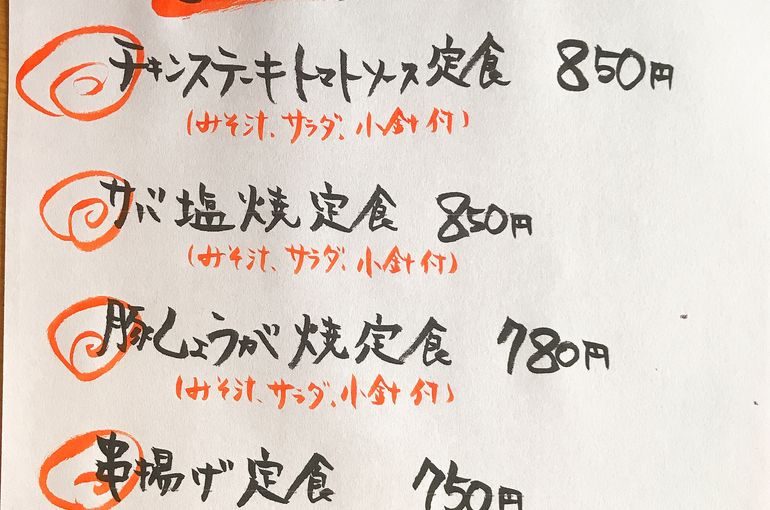 チキンステーキトマトソース定食 850円
(みそ汁、サラダ、小針付)
サバ塩焼定食 850円
(みそ汁、サラダ、小針付)
豚しょうが焼定食 780円
(みそ汁、サラダ、小針付)
串揚げ定食 750円